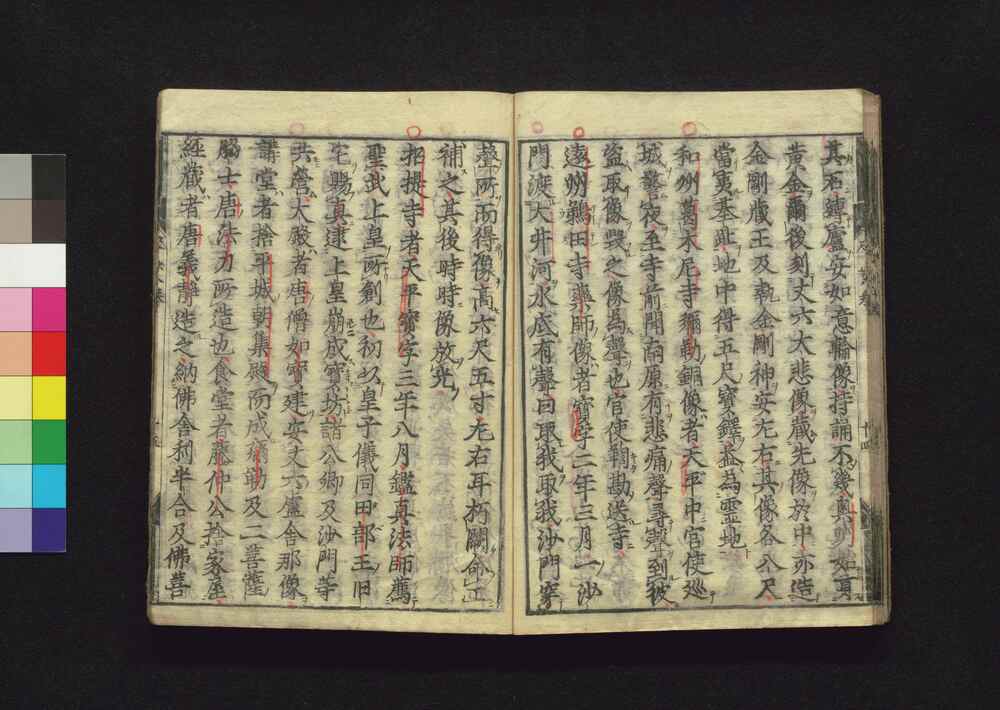 其石縛廬安如意輪像持誦不幾奥
黄金爾後刻丈六大悲像藏先像於中亦造
金剛藏王及執金剛神安左右其像各八尺
當夷基趾地中得五尺寶鐸盖為靈地
和州葛木尼寺彌勒銅像者天平中官使巡
城警夜至寺前聞南原有悲痛聲尋聲到彼
盗取像毀之像為聲也官使鞫勘送寺
遠州鵜田寺藥師像者寶字二年三月一沙
門渡大井河水底有聲曰取我取我沙門穿
聲所而得像高六尺五寸左右耳朽闕命工
補之其後時時像放光
招提寺者天平寶字三年八月鑑真法師爲
聖武上皇所創也初以皇子儀同田部王旧
宅賜真逮上皇崩成寶坊詣八卿及沙門等
共營大殿者唐僧如寶建安丈六廬舍那像
講堂者捨平城朝集殿而成彌勒及二菩薩
脇士唐法力所造也食堂者藤仲公捨家屋
經藏者唐義靜造之納佛舍利半合及佛菩